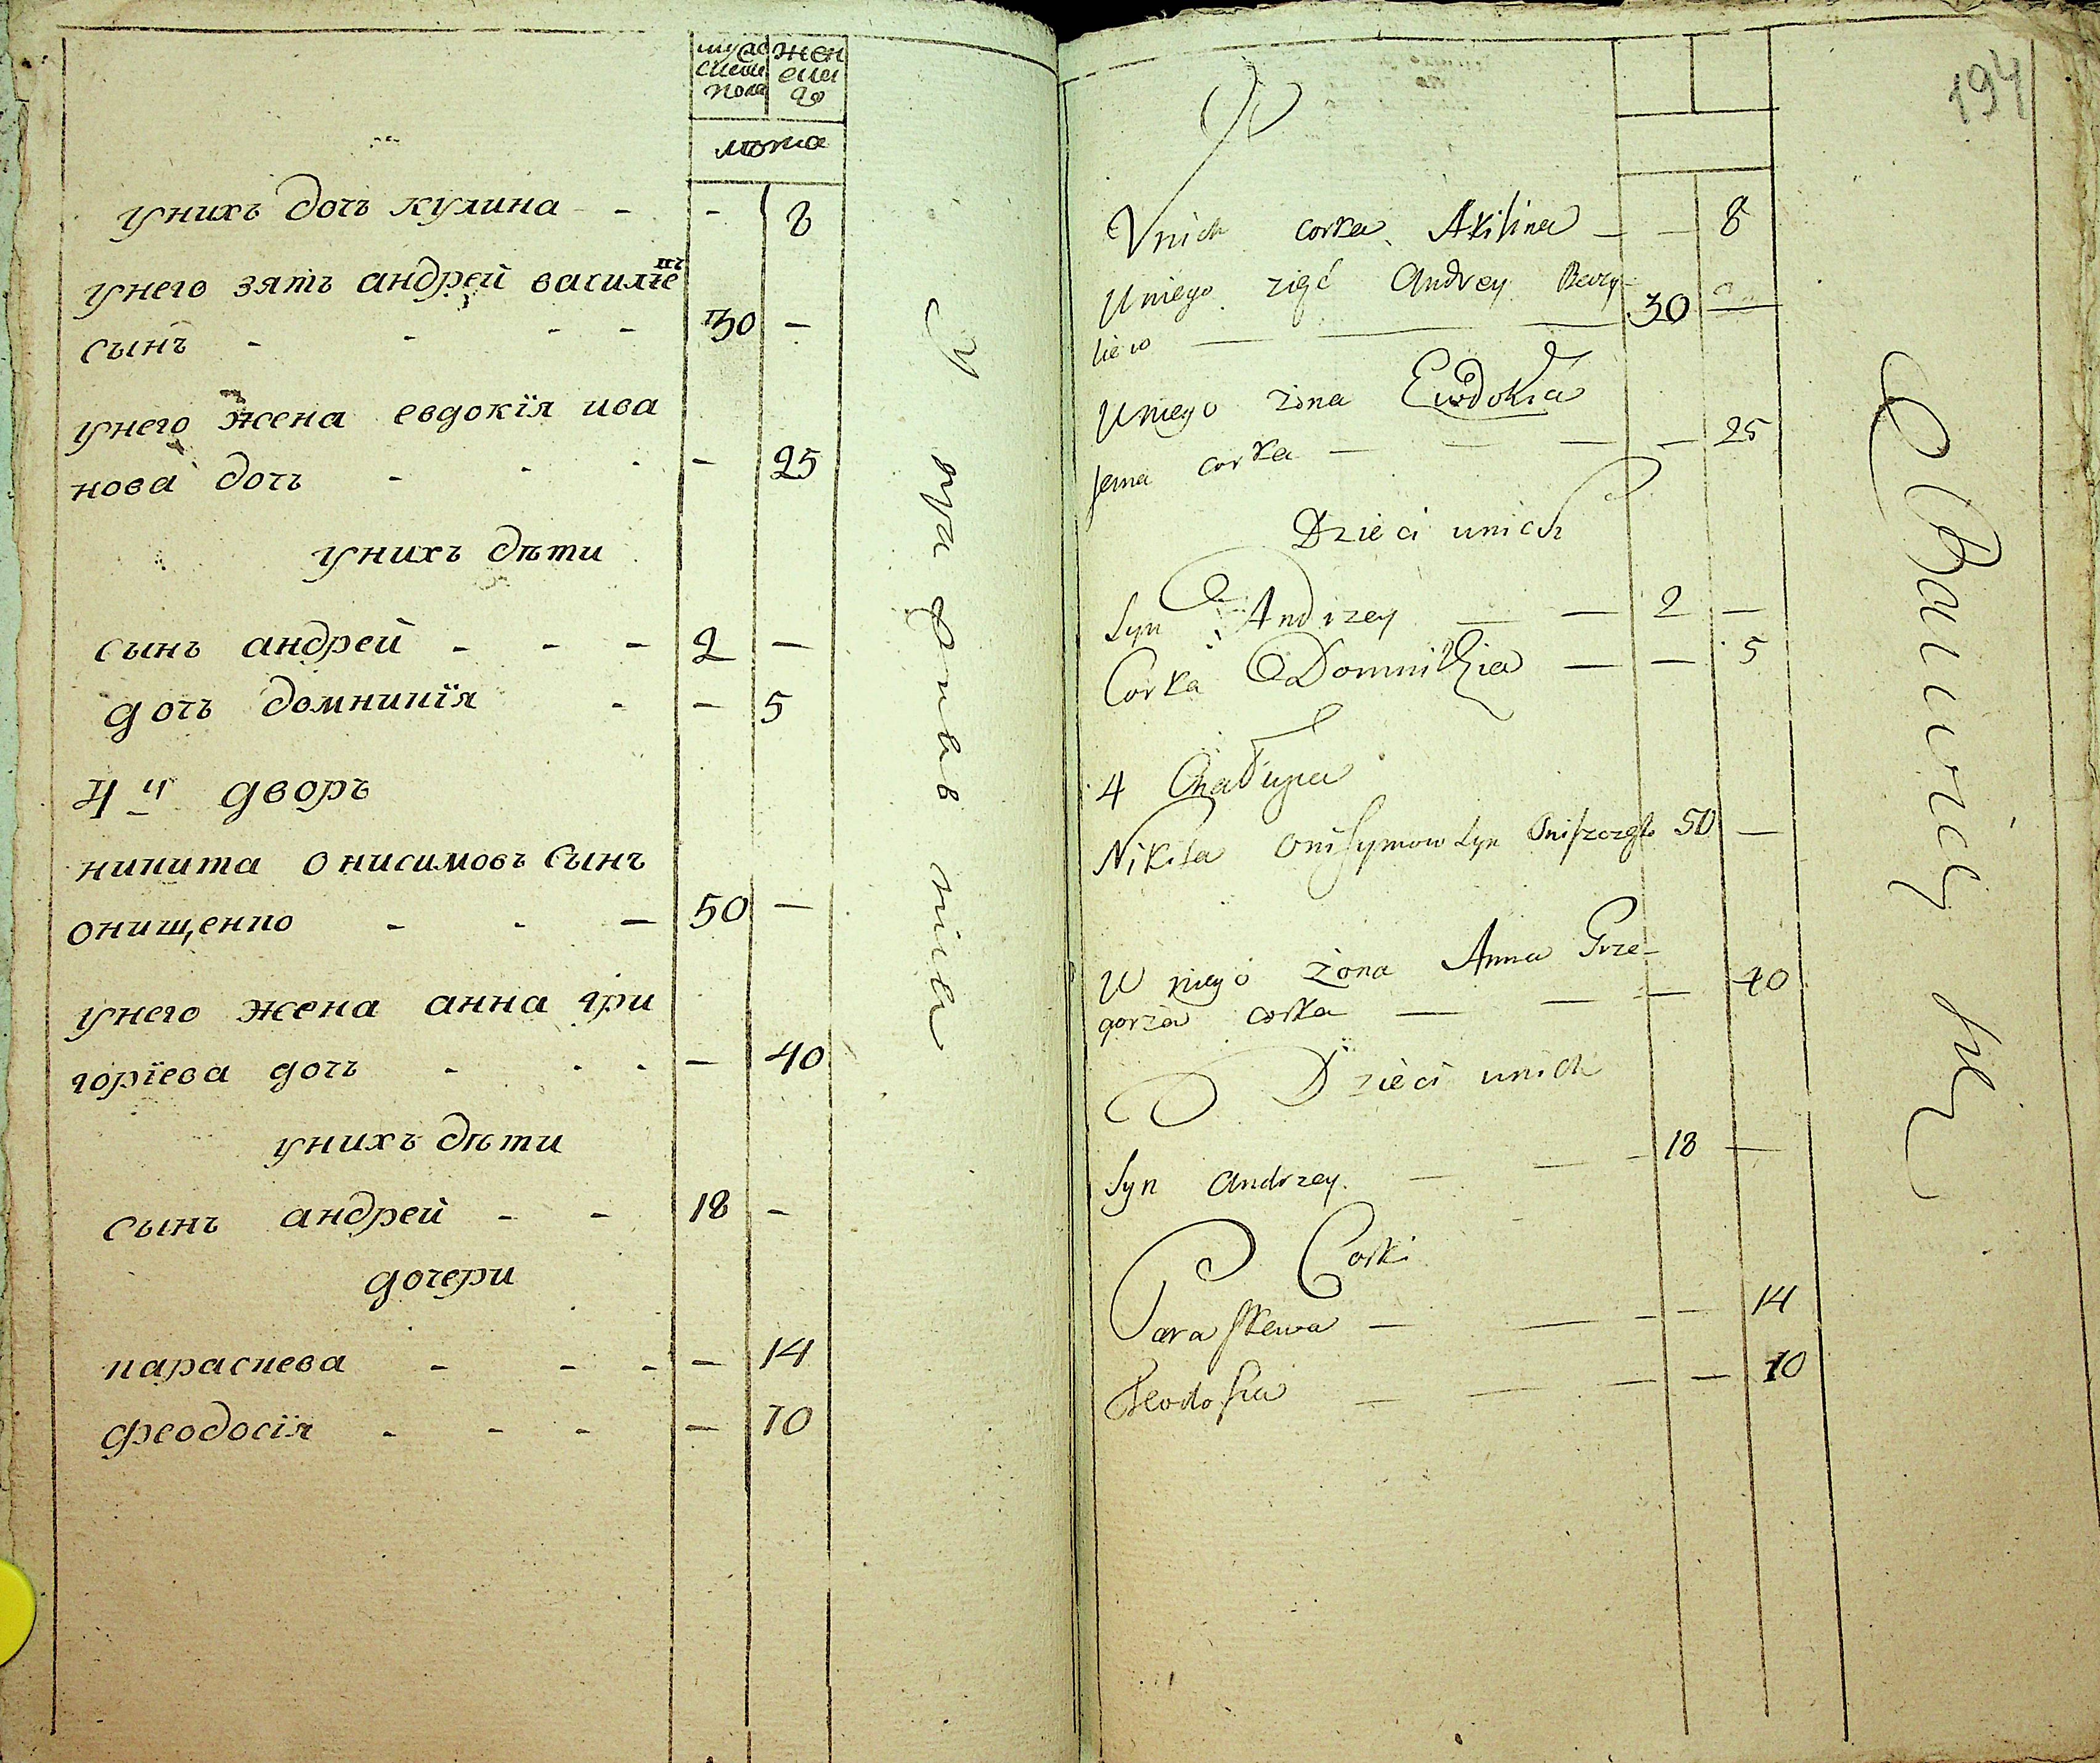 мужс жен
ска ска
пола го
лѣта
унихъ дочь кулина - - 8
унего зять андрей василіевъ
сынъ - - - - 30 —
унего жена евдокїя ива
нова дочь - - - — 25
унихъ дѣти
сынъ андрей - - — 2 —
дочь домникїя - — 5
4й дворъ
никита онисимовъ сынъ
онищенко - - — 50 —
унего жена анна гри
горїева дочь - - - — 40
унихъ дѣти
сынъ андрей - - 18 -
дочери
параскева - - - — 14
феодосїя - - - — 10
194
Unich corka Akilina — — 8
Uniego zięć Andrey Bazy-
liew — — — 30 —
Uniego żona Ewdokia
corka — — — — 25
Dzieci unich
Syn Andrzey — — 2 —
Corka Domnikia — — 5
4 Chałupa
Nikita Onisymow Syn 50 —
U niego żona Anna Grze-
gorza corka — — — 40
Dzieci unich
Syn Andrzey — — - 18 —
Corki
Paraskewa — — - — 14
Teodosia — — — — 10